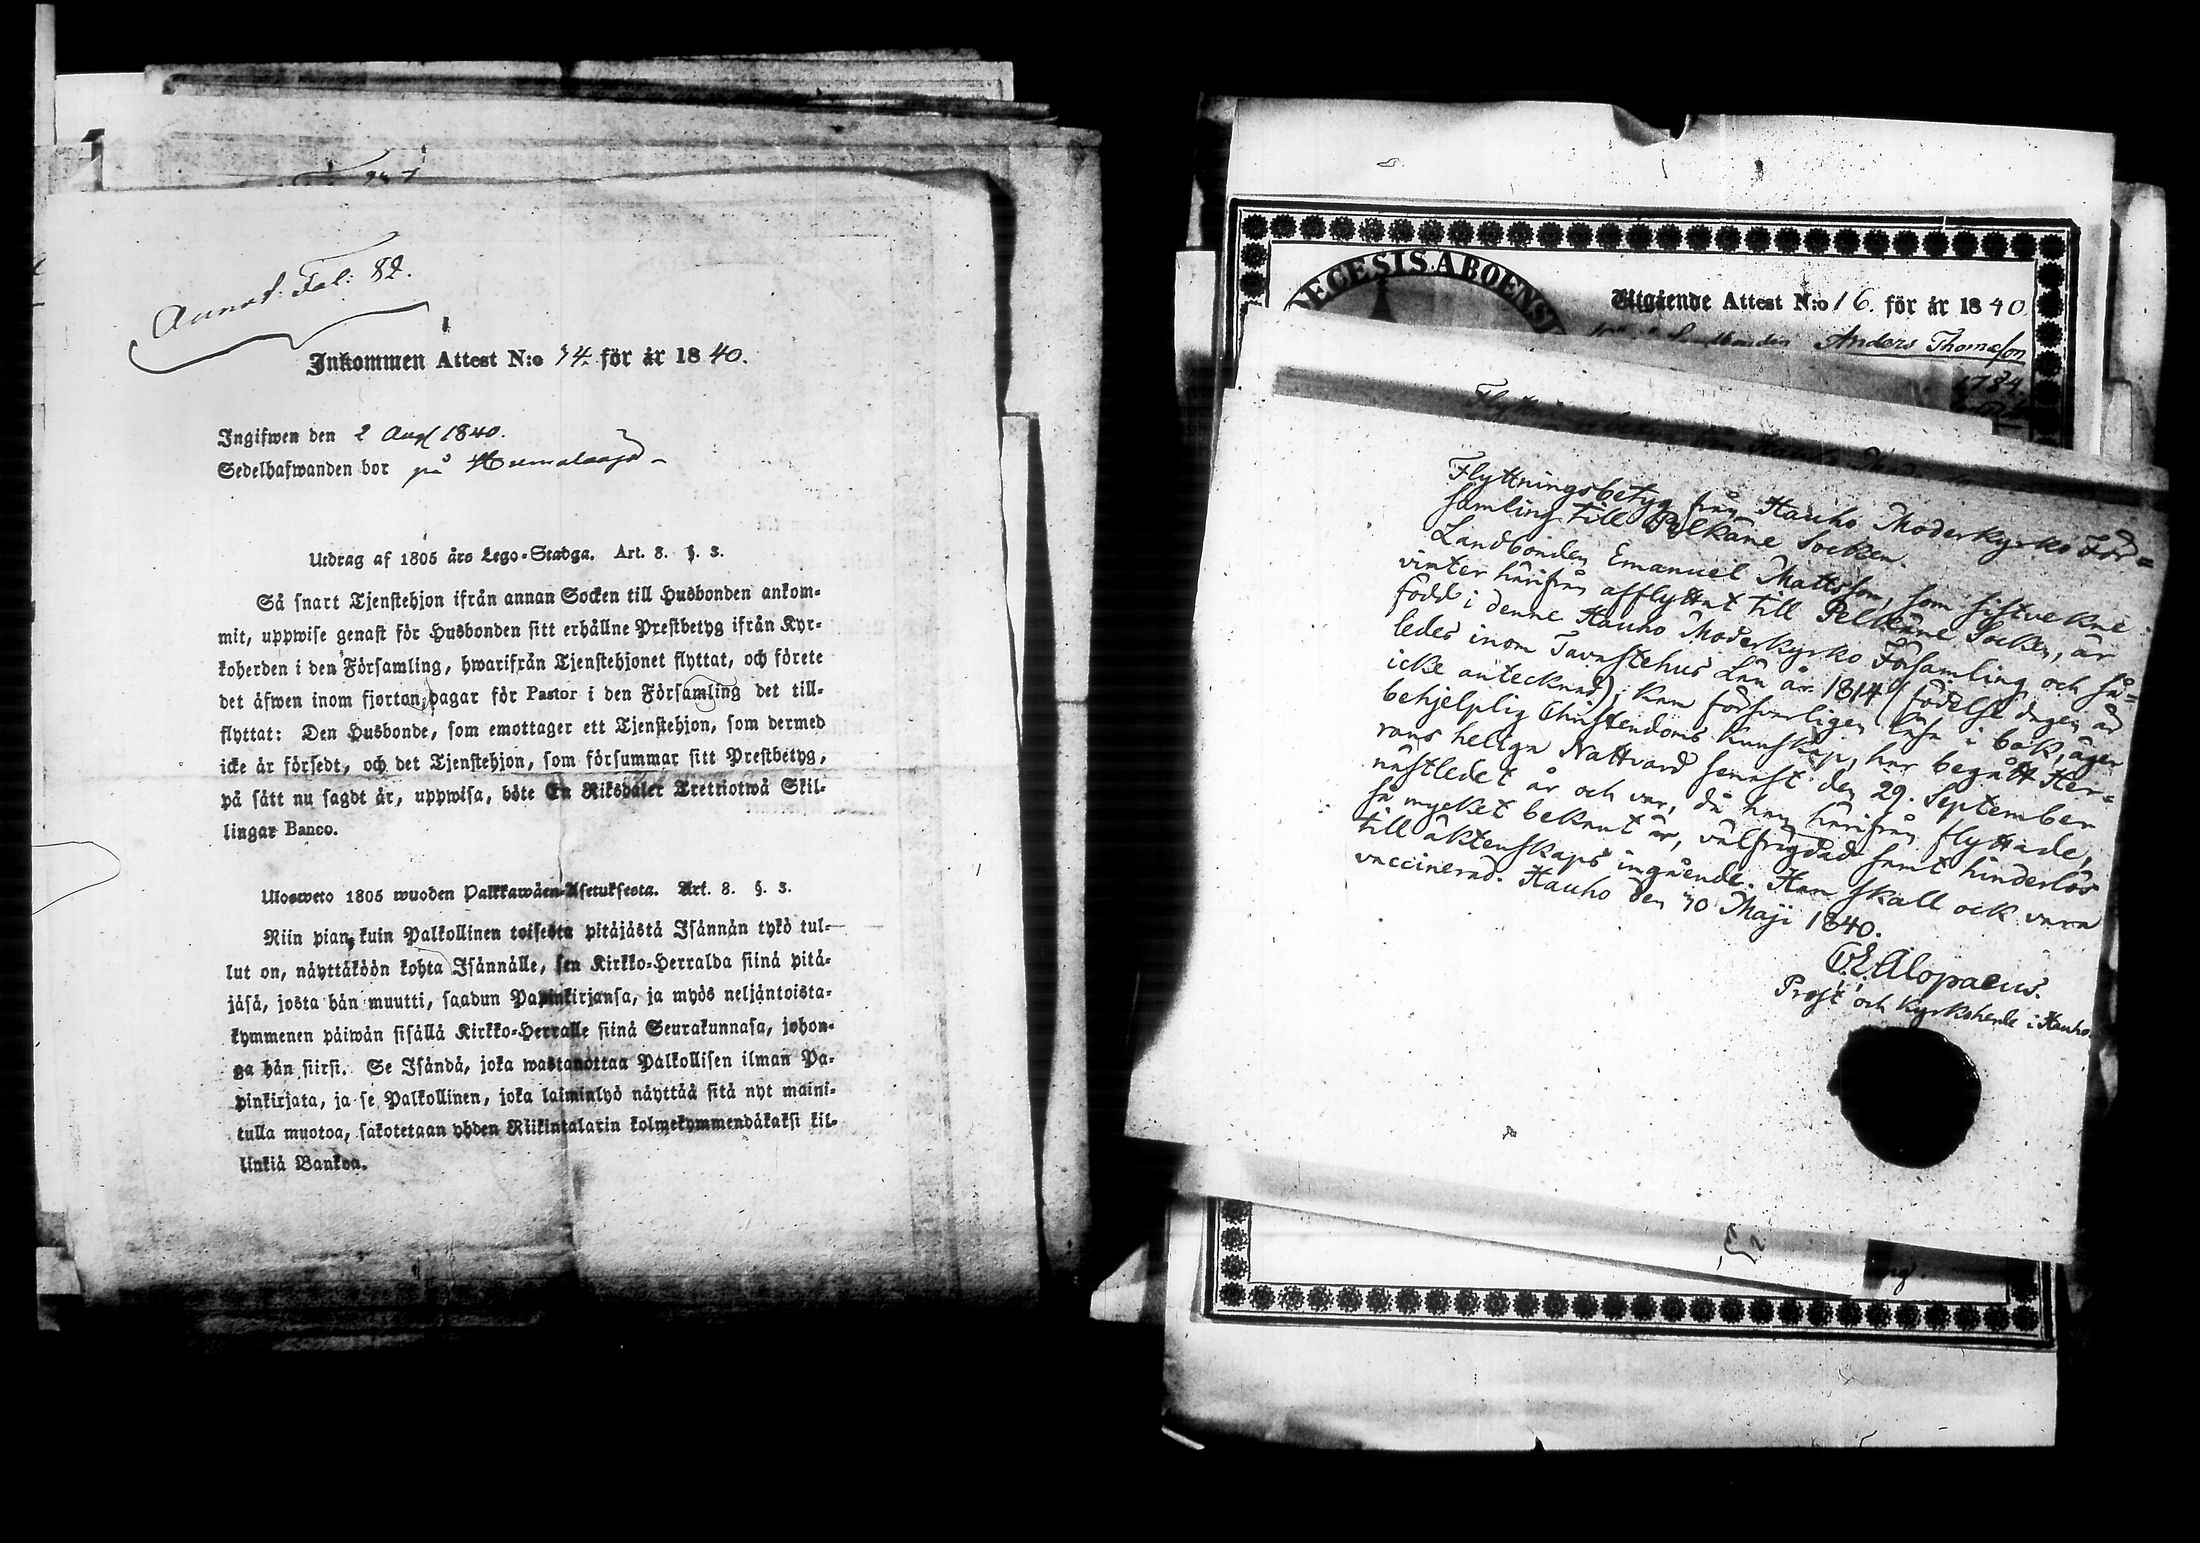 Annot: Fol: 82.
Inkommen Attest N:o 34. för år 1840.
Ingifwen den 2 Aug 1840.
Sedelhafwanden bor på
Utdrag af 1805 års Lego-Stadga. Art. 8. §. 3.
Så snart Tjenstehjon ifrån annan Socken till Husbonden ankom-
mit, uppwise genast för Husbonden sitt erhållne Prestbetyg ifrån Kyr-
koherden i den Församling, hwarifrån Tjenstehjonet flyttat, och förete
det äfwen inom fjorton dagar för Pastor i den Församling det till-
flyttat: Den Husbonde, som emottager ett Tjenstehjon, som dermed
icke är försedt, och det Tjenstehjon, som försummar sitt Prestbetyg,
på sätt nu sagdt är, uppwisa, böte En Riksdaler Trettiotwå Skil-
lingar Banco.
Ulosweto 1805 wuoden Palkkawäen-Asetuksesta. Art. 8. §. 3.
Niin pian, kuin Palkollinen toisesta pitäjästä Isännän tykö tul-
lut on, näyttäköön kohta Isännälle, sen Kirkko-Herralda siinä pitä-
jäsä, josta hän muutti, saadun Papinkirjansa, ja myös neljäntoista-
kymmenen päiwän sisällä Kirkko-Herralle siinä Seurakunnasa, johon-
ga hän siirsi. Se Isändä, joka wastanottaa Palkollisen ilman Pa-
pinkirjata, ja se Palkollinen, joka laiminlyö näyttää sitä nyt maini-
tulla muotoa, sakotetaan yhden Riikintalarin kolmekymmendäkaksi kil-
linkiä Bankoa.
DIECESIS.ABOENSI
Utgående Attest N:o 16. för år 1840
Anders Thomasson
1784
Flyttningsbetyg från Hauho Moderkyrko För=
samling till Pelkäne Socken.
Landbonden Emanuel Mattsson, som sistvekne
vinter härifrån afflyttat till Pelkäne Socken, är
född i denne Hauho Moderkyrko Församling och så=
ledes inom Tavastehus Län år 1814 (födelse dagen är
icke antecknad); kan försvarligen läsa i bok, äger
behjelplig Christendoms kunskap, har begått Her=
rans heliga Nattvard senast den 29. September
nästledet år och var, då han härifrån flyttade,
så mycket bekant är, välfrägdad samt hinderlös
till äktenskaps ingående. Han skall ock vara
vaccinerad. Hauho den 30 Maji 1840.
C. E. Alopaeus.
Prost och Kyrkoherde i Hauho.